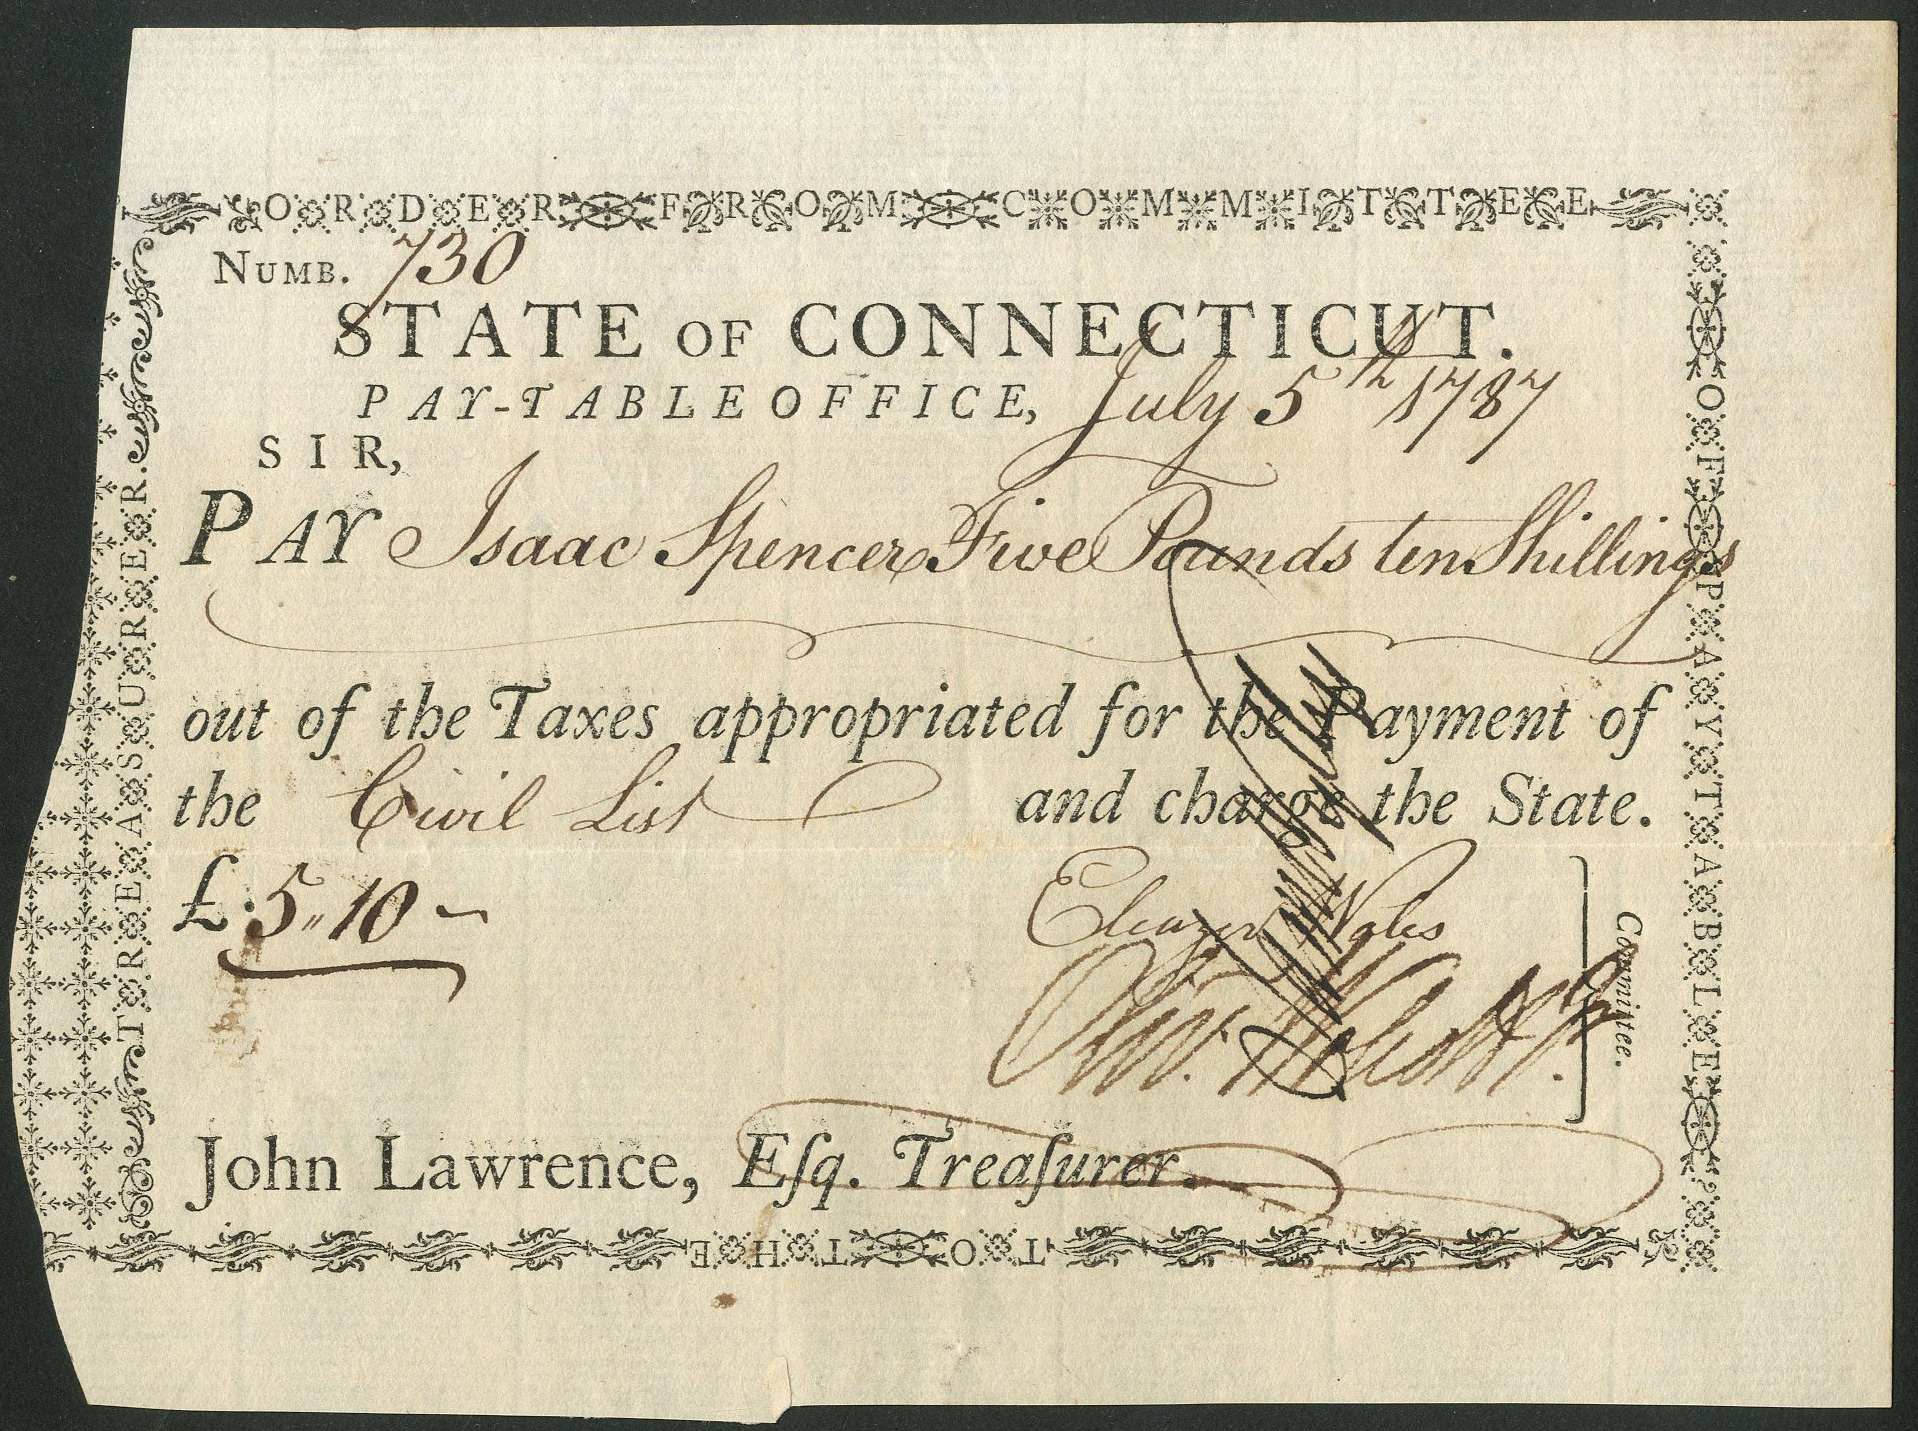 ORDER FROM COMMITTEE
OF PAYTABLE
TO THE
TREASURER.
NUMB. 730
STATE OF CONNECTICUT.
PAY-TABLE OFFICE, July 5th 1787
SIR,
PAY Isaac Spencer Five Pounds ten Shillings
out of the Taxes appropriated for the Payment of
the Civil List and charge the State.
£.5,,10
Eleazer Wales
Oliv. Wolcott Jr.
Committee.
John Lawrence, Eſq. Treaſurer.